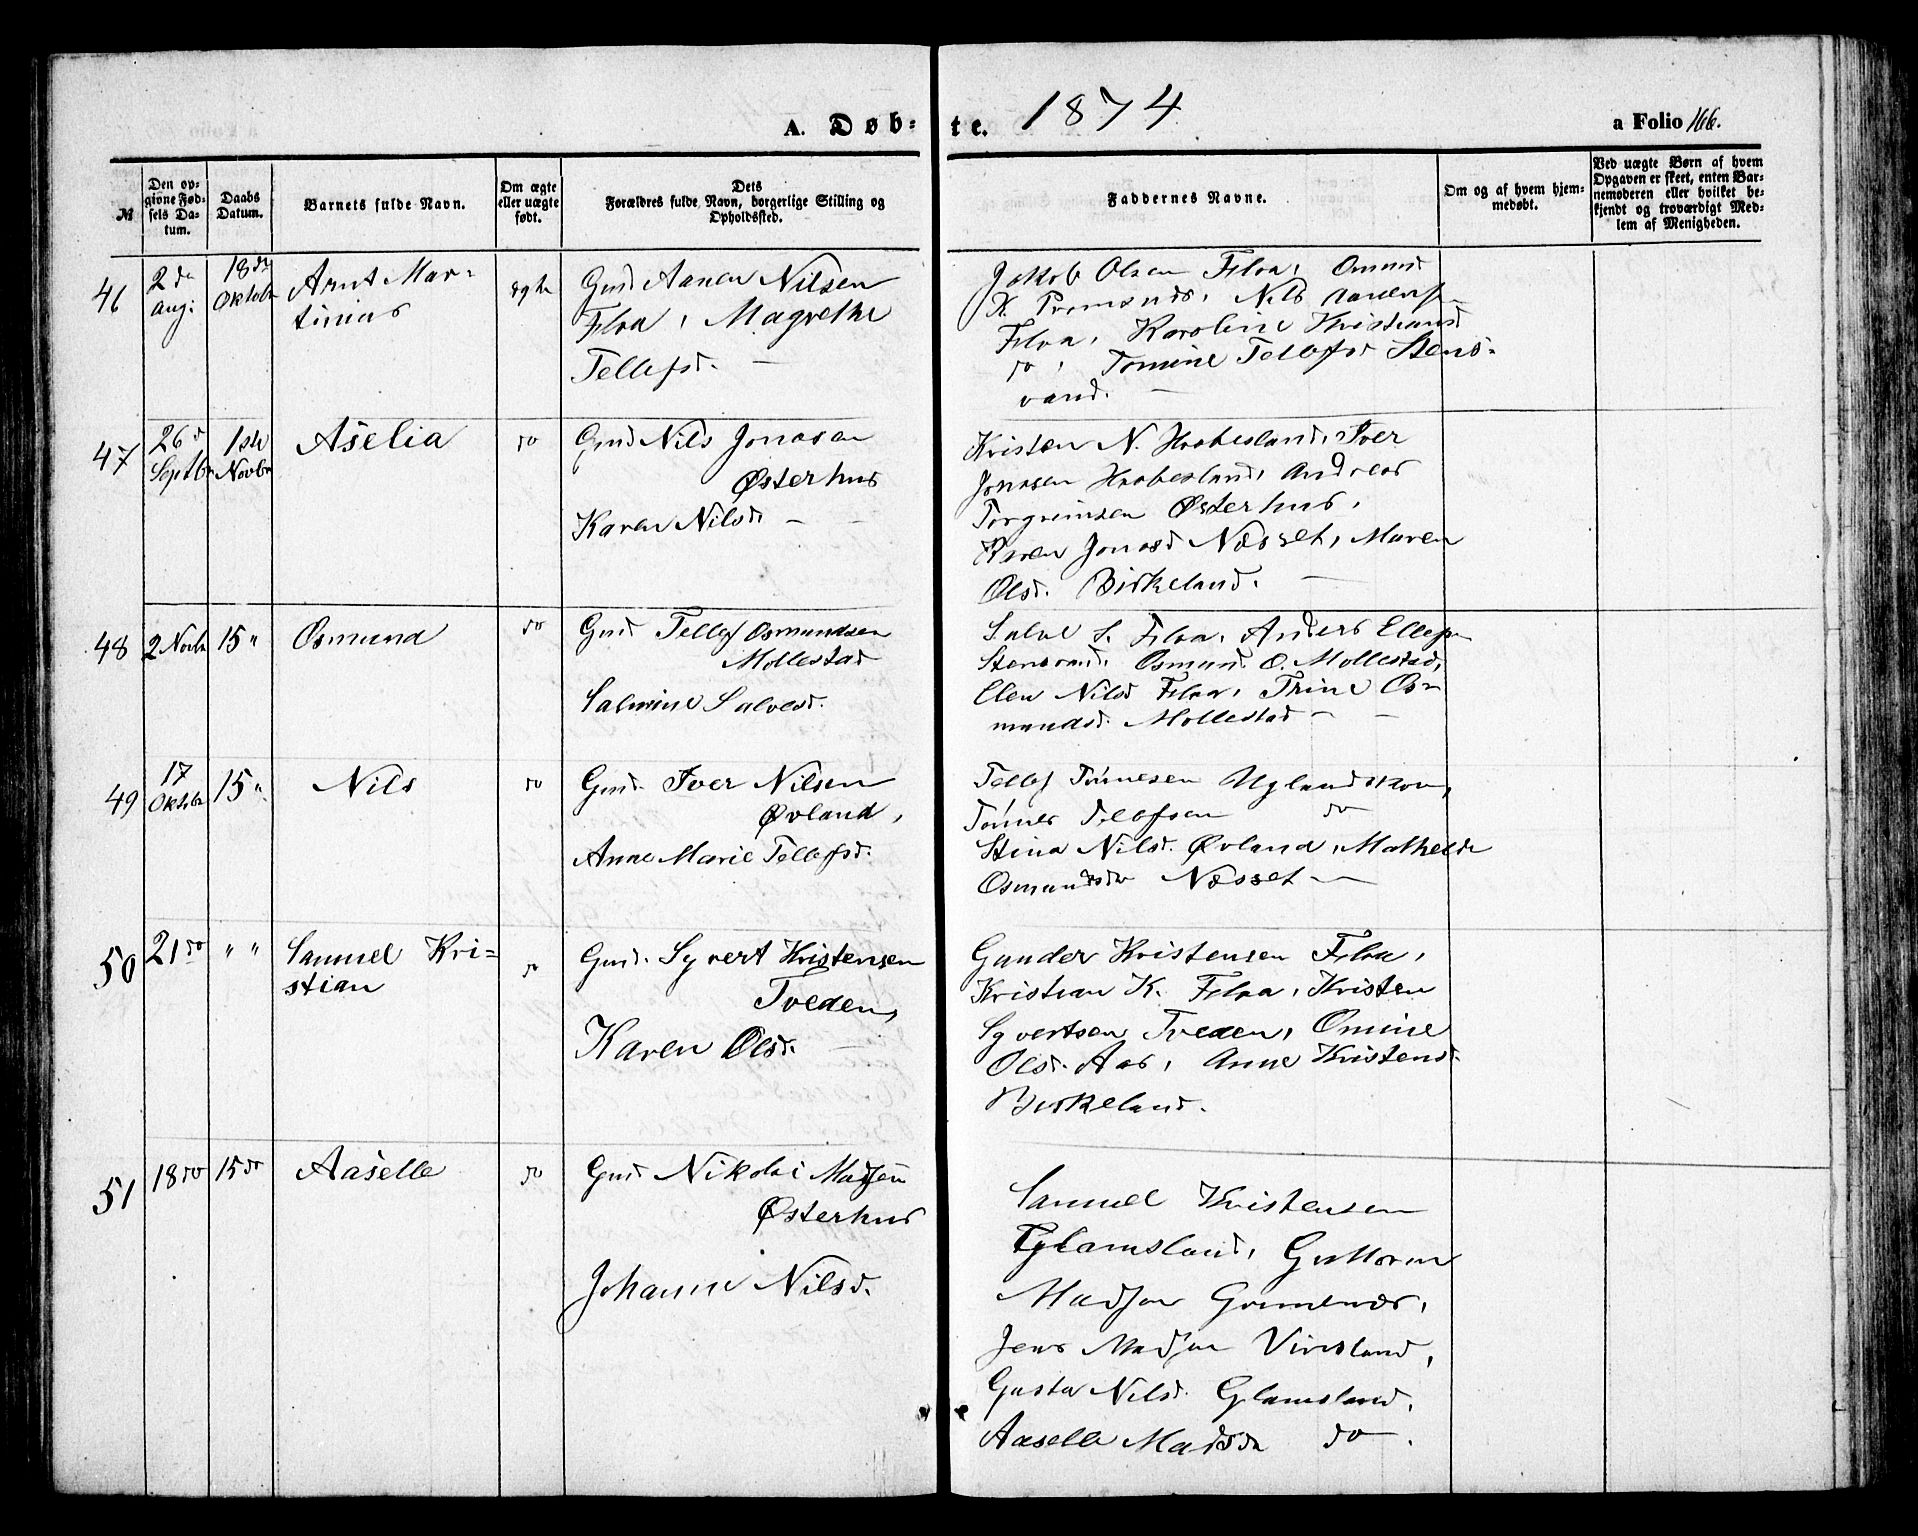 A. Døb=
te. 1874
a Folio 166.
№
Den op=
givne Fød=
sels Da=
tum.
Daabs
Datum.
Barnets fulde Navn.
Om ægte
eller uægte
født.
Dets
Forældres fulde Navn, borgerlige Stilling og
Opholdssted.
Faddernes Navne.
Om og af hvem hjem=
medøbt.
Ved uægte Børn af hvem
Opgaven er skeet, enten Bar=
nemoderen eller hvilket be=
kjendt og troværdigt Med=
lem af Menigheden.
46
2de
Aug:
18de
Oktobr
Arnt Mar=
tinius
ægte
Gmd Aanen Nilsen
Filva, Magrethe
Tellefsd. —
Jakob Olsen Filva, Omund
K. Nils Aanens
Filva, Karoline Kristiansd
do, Tomine Tellefsd Stens=
vand. —
47
26d
Septbr
1ste
Novbr
Aselia
do
Gmd Nils Jonasen
Østerhus
Karen Nilsd. — —
Kristen N. Haabesland, Iver
Jonasen Haabesland, Andreas
Torgrimsen Østerhus,
Karen Jonasd Nøsset, Maren
Olsd. Birkeland. —
48
2 Novbr
15 "
Osmund
do
Gmd Tellef Osmundsen
Mollestad
Salmine Salvesd.
Salve S. Filva, Anders Ellefsen
Stensvand, Osmund O. Mollestad,
Elen Nilsd Filva, Trine Os=
mundsd. Mollestad — —
49
17
Oktobr
15 "
Nils
do
Gmd. Iver Nilsen
Øvland,
Anne Marie Tellefsd.
Tellef Tönnesen Uglandskov,
Tönnes Telefsen do
Stina Nilsd. Øvland, Mathelde
Osmundsdr Nøsset —
50
21 do
" "
Samuel Kri=
stian
do
Gmd. Syvert Kristensen
Tveden,
Karen Olsd. —
Gunder Kristensen Filva,
Kristian K. Filva, Kristen
Syvertsen Tveden, Omine
Olsd. Aas, Anne Kristensd.
Birkeland.
51
18 do
15 do
Aaselle
do
Gmd Nikolai Madsen
Østerhus
Johanne Nilsd.
Samuel Kristensen
Glamsland, Guttorm
Madsen Grimenæs,
Jens Madsen Vinsland,
Gusta Nilsd. Glamsland,
Aaselle Madsdr do.